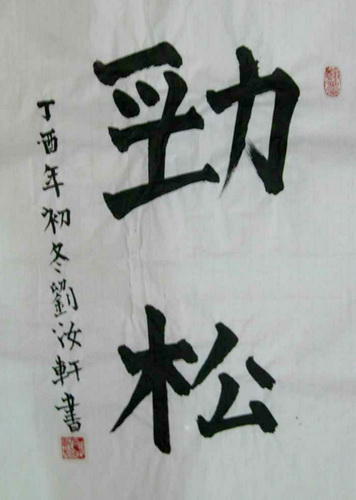 勁松
丁酉年初冬劉汝軒書